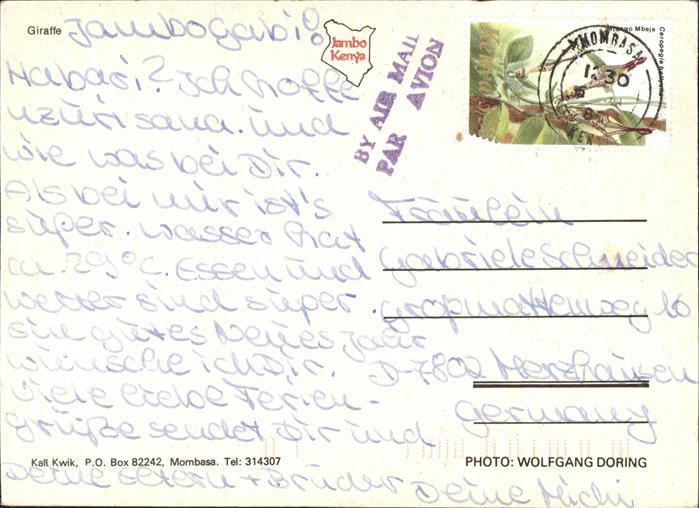 Giraffe
Jambo Gabi!
Jambo
Kenya
BY AIR MAIL
PAR AVION
Mtungo Mbeja
Ceropegia
MOMBASA
1230
Habari? Ich hoffe
nzuri sana. und
wie was bei Dir.
Als bei mir ist's
super. wasser hat
ca. 29°C. Essen und
wetter sind super.
ein gutes Neues Jahr
wünsche ich Dir.
Viele liebe Ferien-
grüße sendet Dir und
Deine Eltern + Brüder Deine Michi
Fräulein
Gabriele Schneider
Großmattenweg 10
D-7802 Merzhausen
Germany
Kall Kwik, P.O. Box 82242, Mombasa. Tel: 314307
PHOTO: WOLFGANG DORING